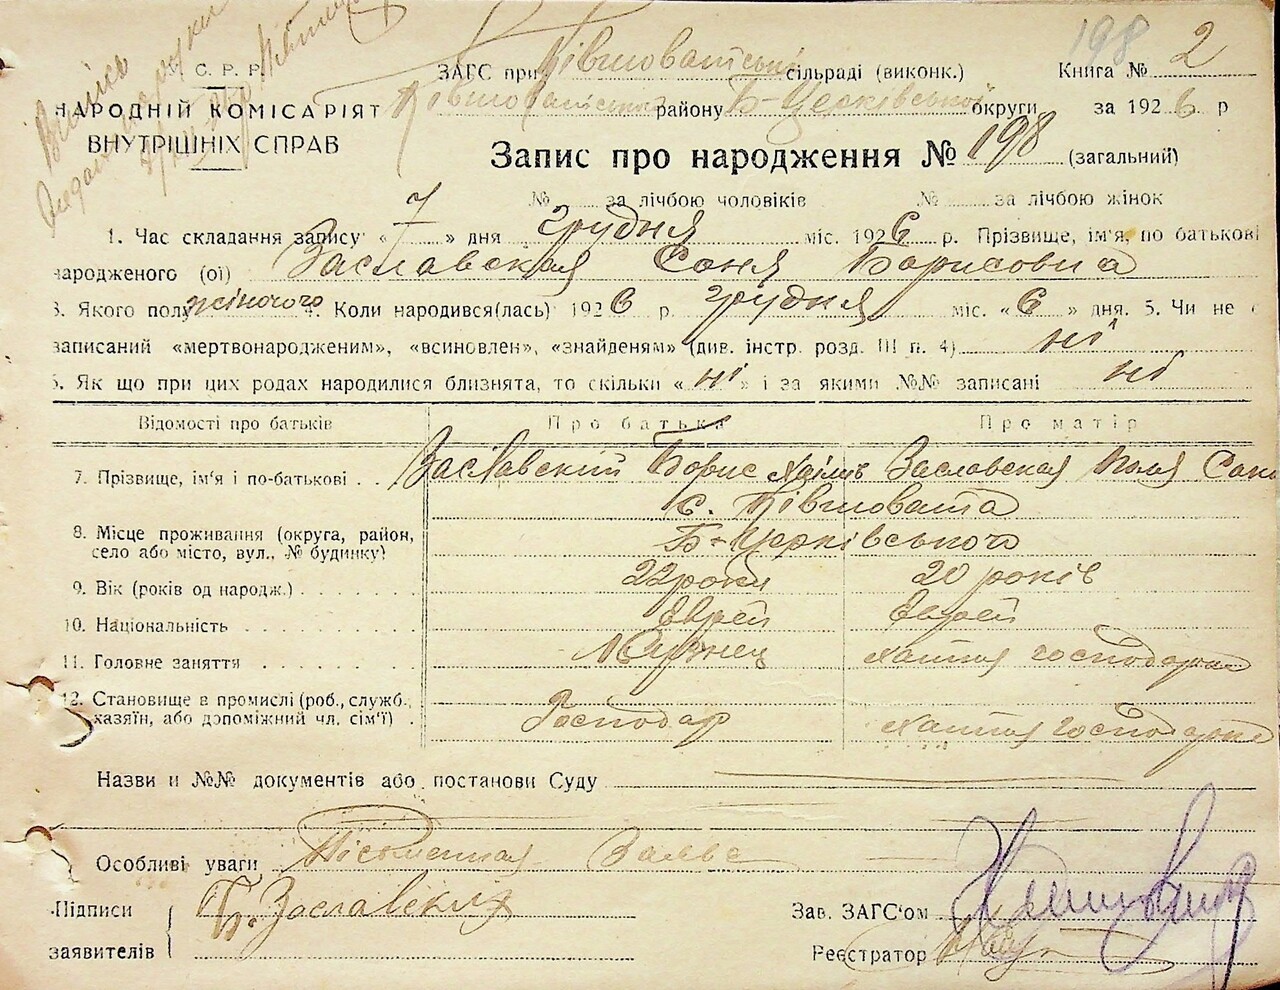 Випись
У. С. Р. Р.
НАРОДНІЙ КОМІСАРІЯТ
ВНУТРІШНІХ СПРАВ
ЗАГС при Півшоватській сільраді (виконк.)
198
Книга № 2
Півшоватського району Б-Церківської округи за 1926 р
Запис про народження № 198 (загальний)
№ за лічбою чоловіків № за лічбою жінок
1. Час складання запису «7» дня Грудня міс. 1926 р. Прізвище, ім'я, по батькові
народженого (ої) Заславская Соня Борисовна
3. Якого полу жіночого 4. Коли народився(лась) 1926 р. грудня міс. «6» дня. 5. Чи не є
записаний «мертвонародженим», «всиновлен», «знайденям» (див. інстр. розд. III п. 4) ні
6. Як що при цих родах народилися близнята, то скільки «ні» і за якими №№ записані ні
Відомості про батьків Про батька Про матір
7. Прізвище, ім'я і по-батькові Заславский Борис Заславская Поля
с. Півшовата
8. Місце проживання (округа, район, село або місто, вул., № будинку) Б-Церківського
9. Вік (років од народж.) 22 роки 20 років
10. Національність Єврей Єврей
11. Головне заняття хатня господарка
12. Становище в промислі (роб., служб., хазяїн, або допоміжний чл. сім'ї) Господар хатня господарка
Назви и №№ документів або постанови Суду
Особливі уваги Заява
Підписи
заявителів Б. Заславский
Зав. ЗАГС'ом
Реєстратор